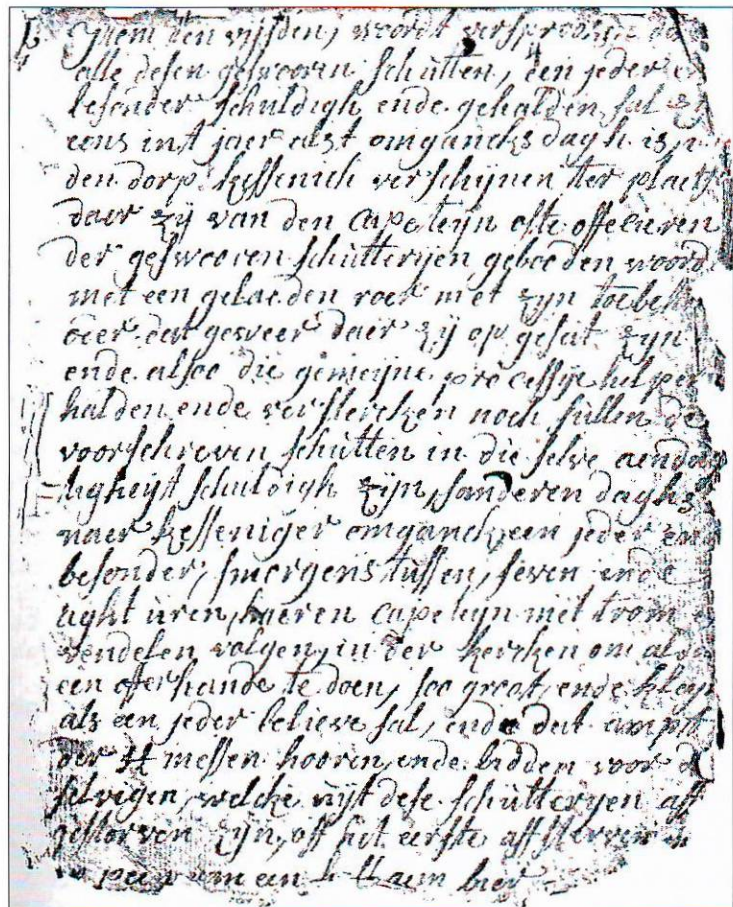 Item ten vijfden, wordt versproocken
alle desen geswooren schutten, een jeder
besonder schuldigh ende gehalden sal
eens int jaer alst omgancks dagh is,
den dorp kessenich verschijnen ter plaets
daer zij van den Capeteijn ofte offecieren
der geswooren schutterijen geboeden woord
met een gelaeden roer met zijn
oeer dat geweer daer zij op gesat zijn
ende alsoe die gemeijne processije helpen
halden ende verstercken noch sullen de
voorschreven schutten in die selve
schuldigh zijn, sanderen daghs
naer kesseniger omganck, een jeder en
besonder, smergens tussen, seven ende
aght uren, haeren Capeteijn met trom
vendelen volgen, in der kercken om
een offerhande te doen, soo groot, ende kleijn
als een jeder believe sal, ende dat ampt
der H messen hooren, ende bidden voor
selvigen, welcke uijt dese schutterijen aff
gestorven zijn, off het eerste affsterven
een aem bier